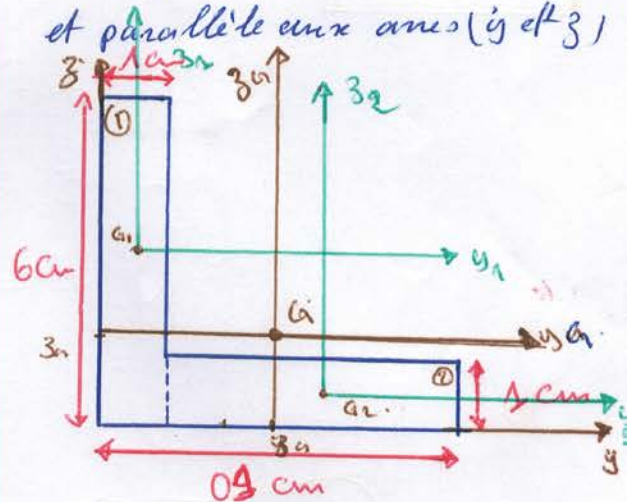 et parallèle aux axes (y et z)
z
1 cm
z1
zG
z2
①
G1
y1
6 cm
G
yG
zG
②
1 cm
G2
y
yG
cm